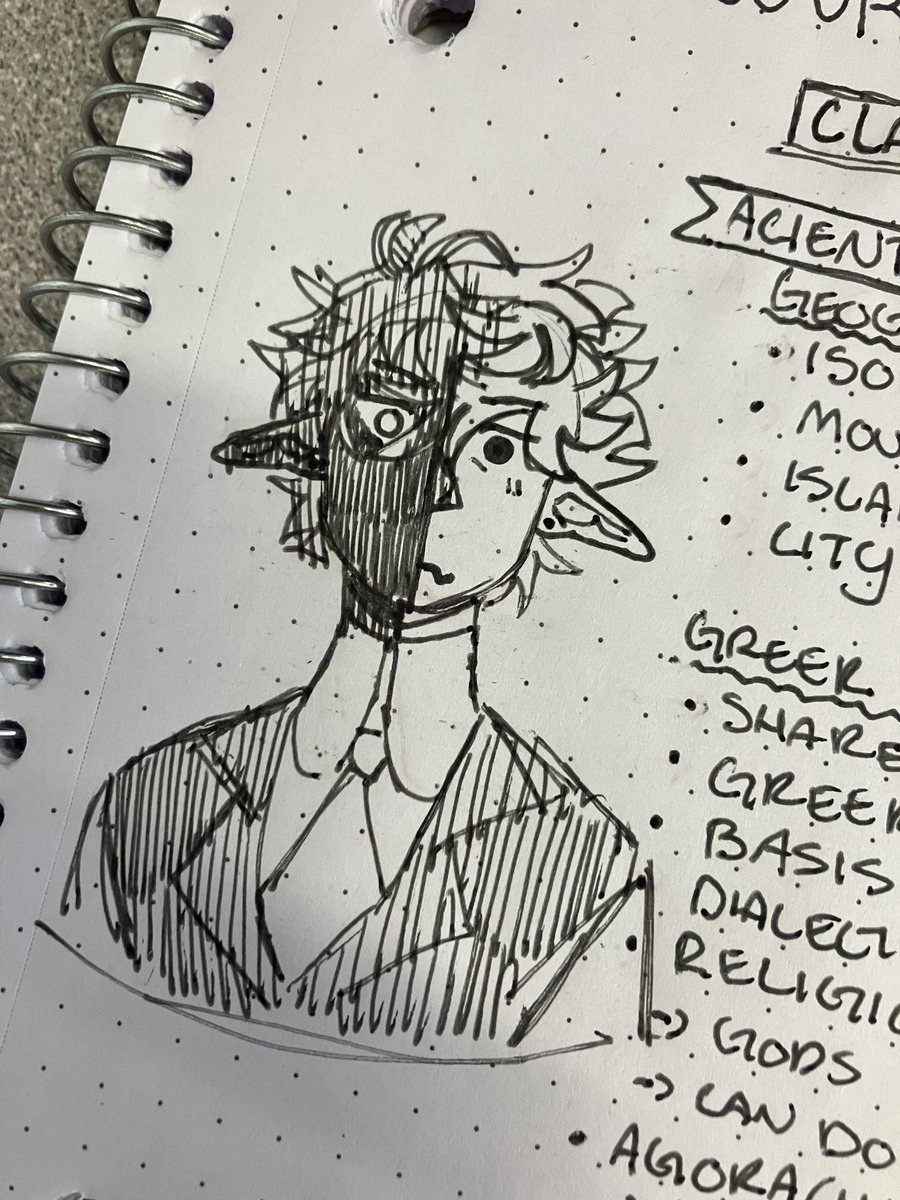 CLA
ACIENT
GEOG
ISO
MOU
ISLA
CITY
GREEK
SHARE
GREEK
BASIS
DIALECT
RELIGIO
→ GODS
→ CAN DO
AGORA